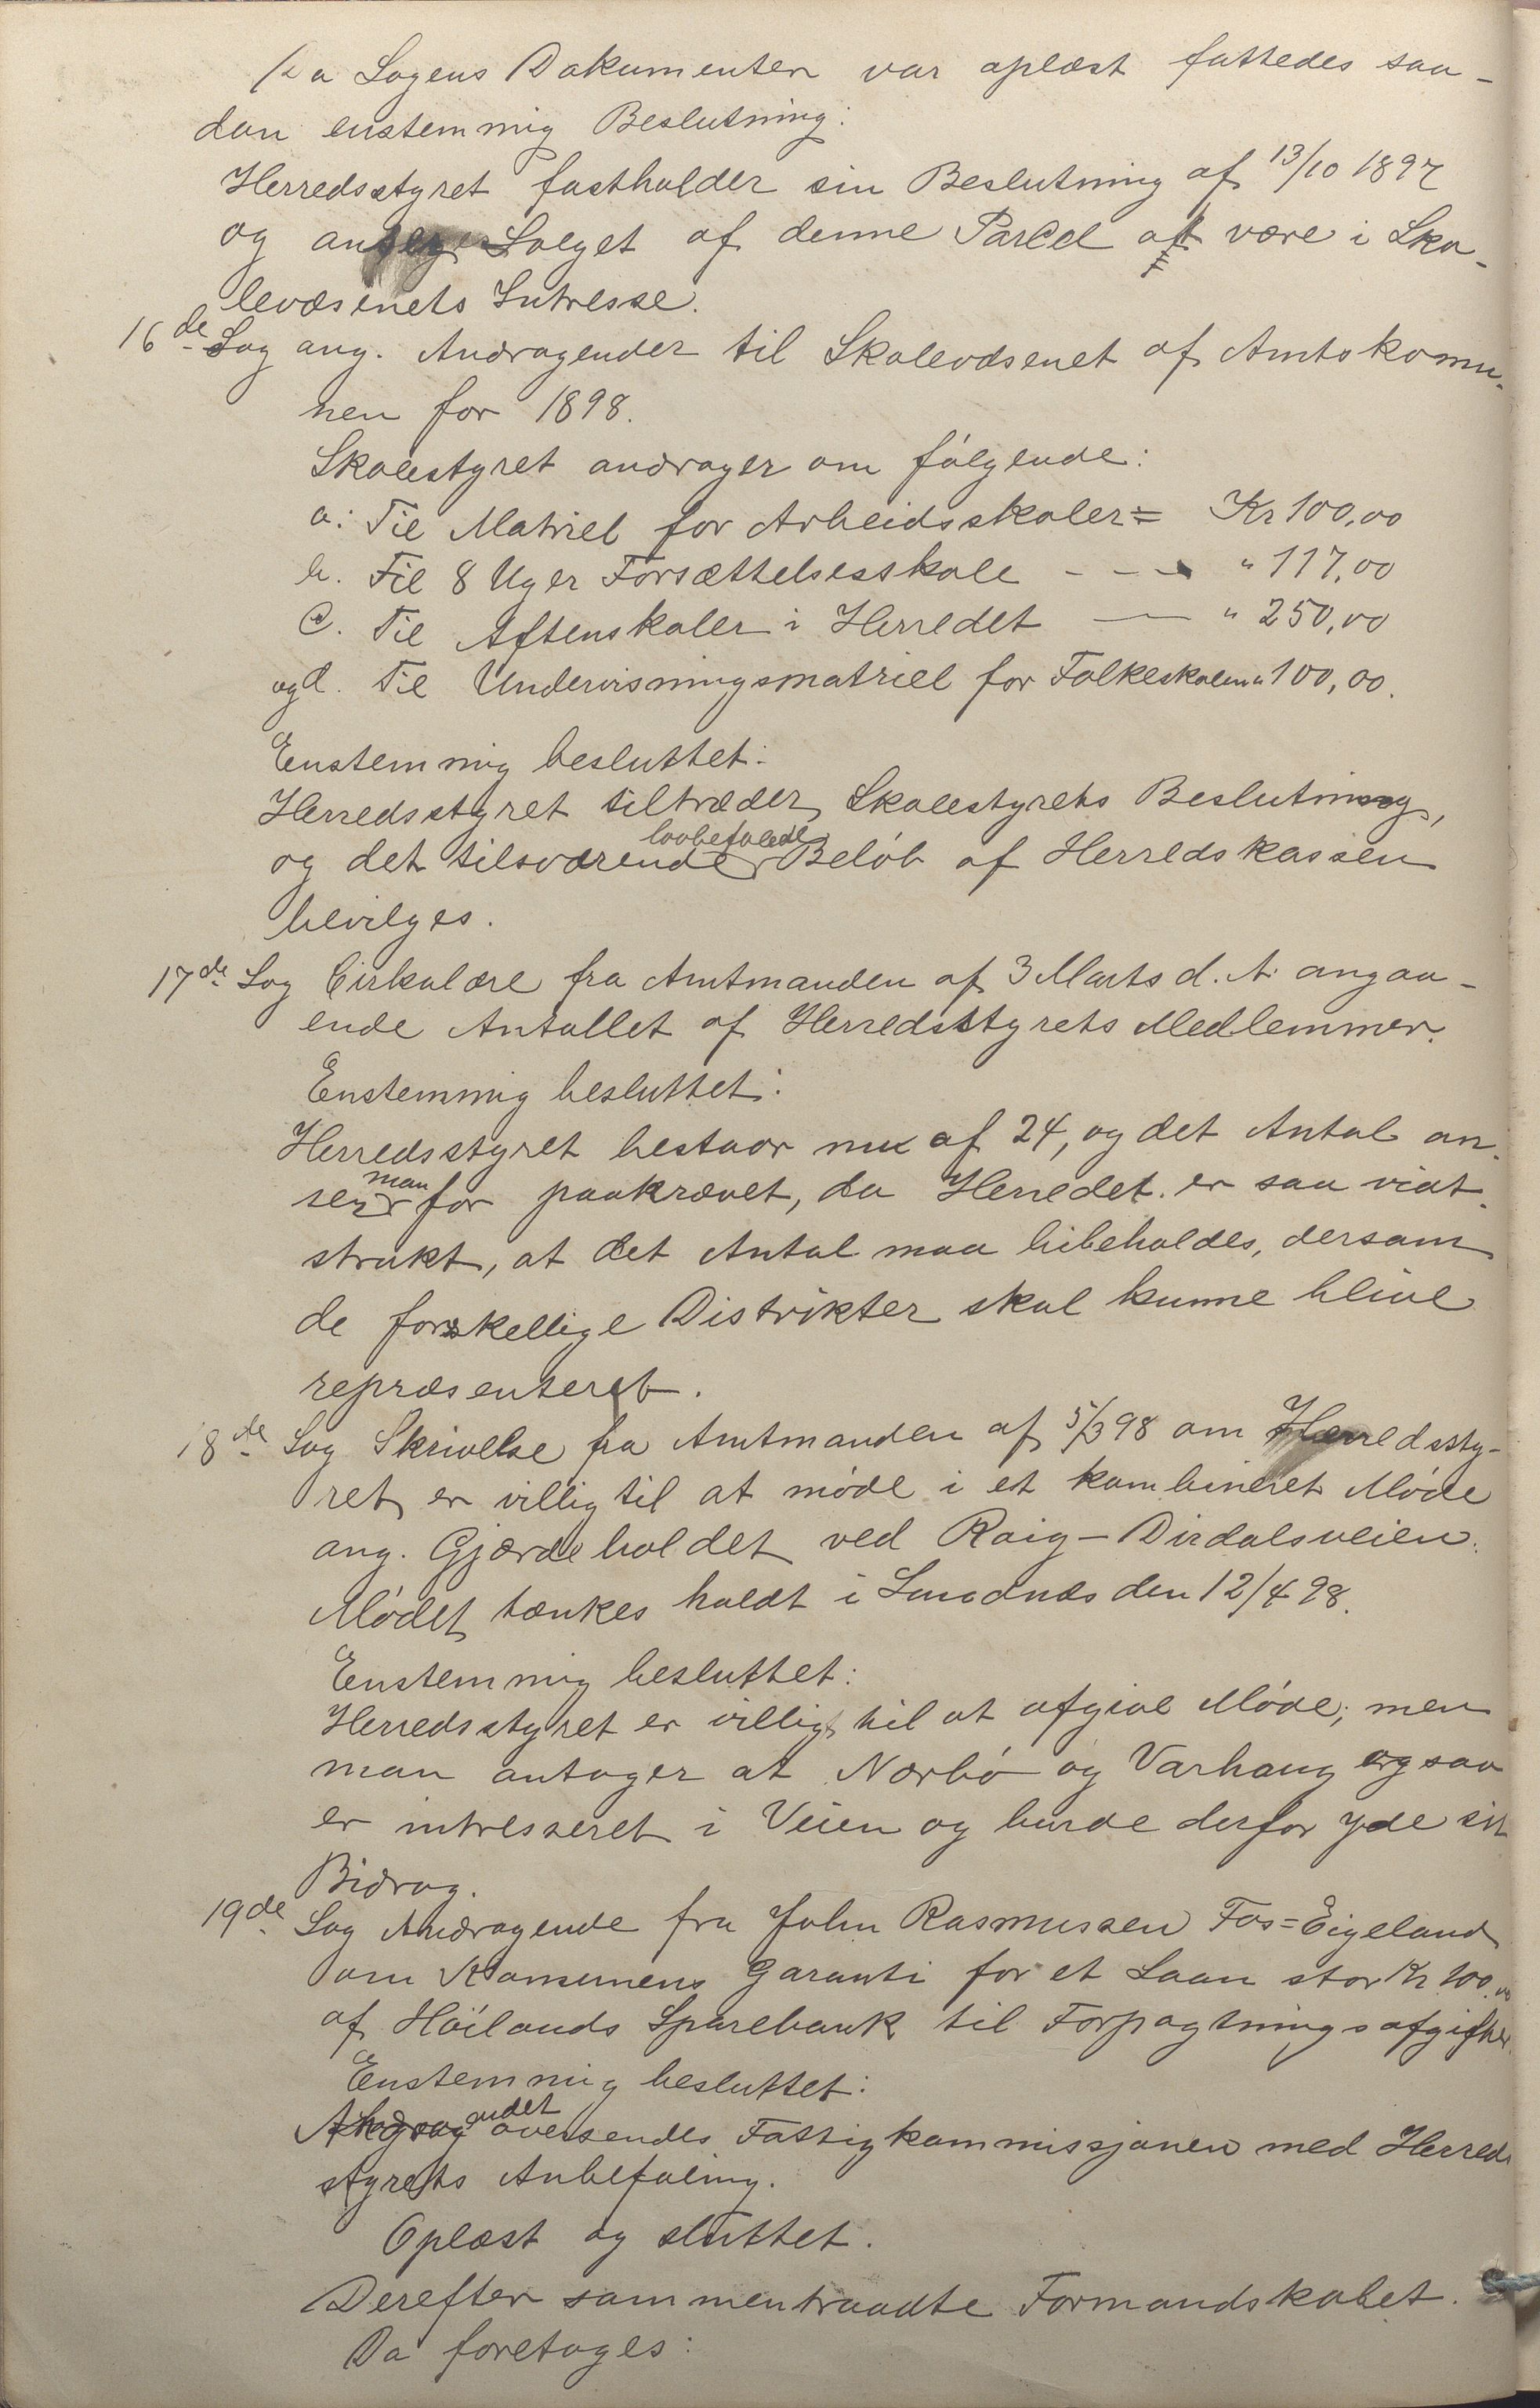 Da Sagens Dokumenter var oplæst fattedes saa-
dan enstemmig Beslutning:
Herredsstyret fastholder sin Beslutning af 13/10 1897
og anser Salget af denne Parcel at være i Sko-
levæsenets Intresse.
16de Sag ang. Andragender til Skolevæsenet af Amtskomu-
nen for 1898.
Skolestyret andrager om følgende:
a: Til Matriel for Arbeidsskoler = Kr 100,00
b. Til 8 Uger Forsættelsesskole - - - " 117,00
C. Til Aftenskoler i Herredet — " 250,00
og d. Til Undervisningsmatriel for Folkeskolen " 100,00.
Enstemmig besluttet:
Herredsstyret tiltræder Skolestyrets Beslutning,
lovbefalede
og det tilsvarende Beløb af Herredskassen
bevilges.
17de Sag Cirkulære fra Amtmanden af 3 Marts d. A. angaa-
ende Antallet af Herredsstyrets Medlemmer.
Enstemmig besluttet:
Herredsstyret bestaar nu af 24, og det Antal an-
man
ser for paakrævet, da Herredet er saa vidt-
strakt, at det Antal maa bibeholdes, dersom
de forskellige Distrikter skal kunne blive
repræsenteret.
18de Sag Skrivelse fra Amtmanden af 5/3 98 om Herredssty-
ret er villig til at møde i et kombineret Møde
ang. Gjærdeholdet ved Raig-Dirdalsveien.
Mødet tænkes holdt i den 12/4 98.
Enstemmig besluttet:
Herredsstyret er villigt til at afgive Møde; men
man antager at Nærbø og Varhaug ogsaa
er intresseret i Veien og burde derfor yde sit
Bidrag.
19de Sag Andragende fra John Rasmussen Fos=Eigeland
om Komunens Garanti for et Laan stor Kr 100.00
af Høilands Sparebank til Forpagtningsafgifter.
Enstemmig besluttet:
andet
Andrag oversendes Fattigkommissjonen med Herreds
styrets Anbefaling.
Oplæst og sluttet.
Derefter sammentraadte Formandskabet.
Da foretoges: